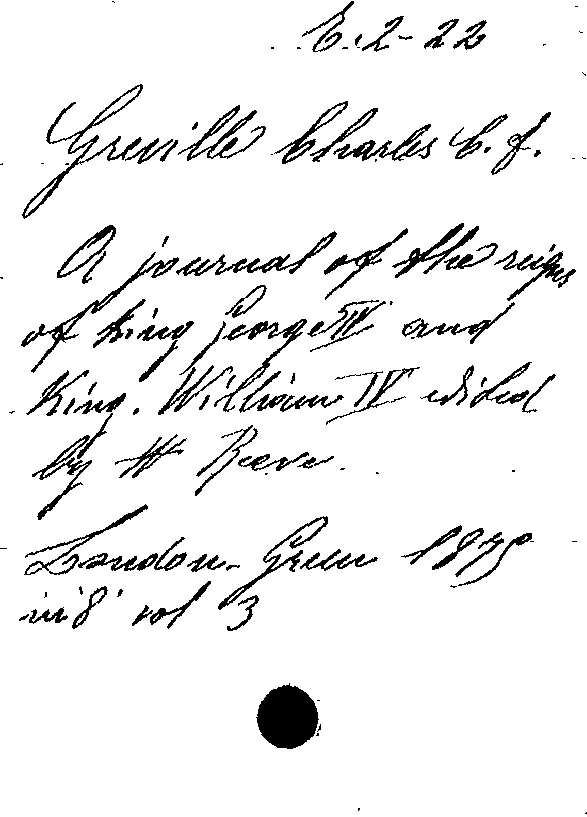 E.2-22
Greville Charles C. F.
A journal of the reigns
of King George IV and
King. William IV edited
by H Reeve.
London - Green 1875
in 8° vol 3